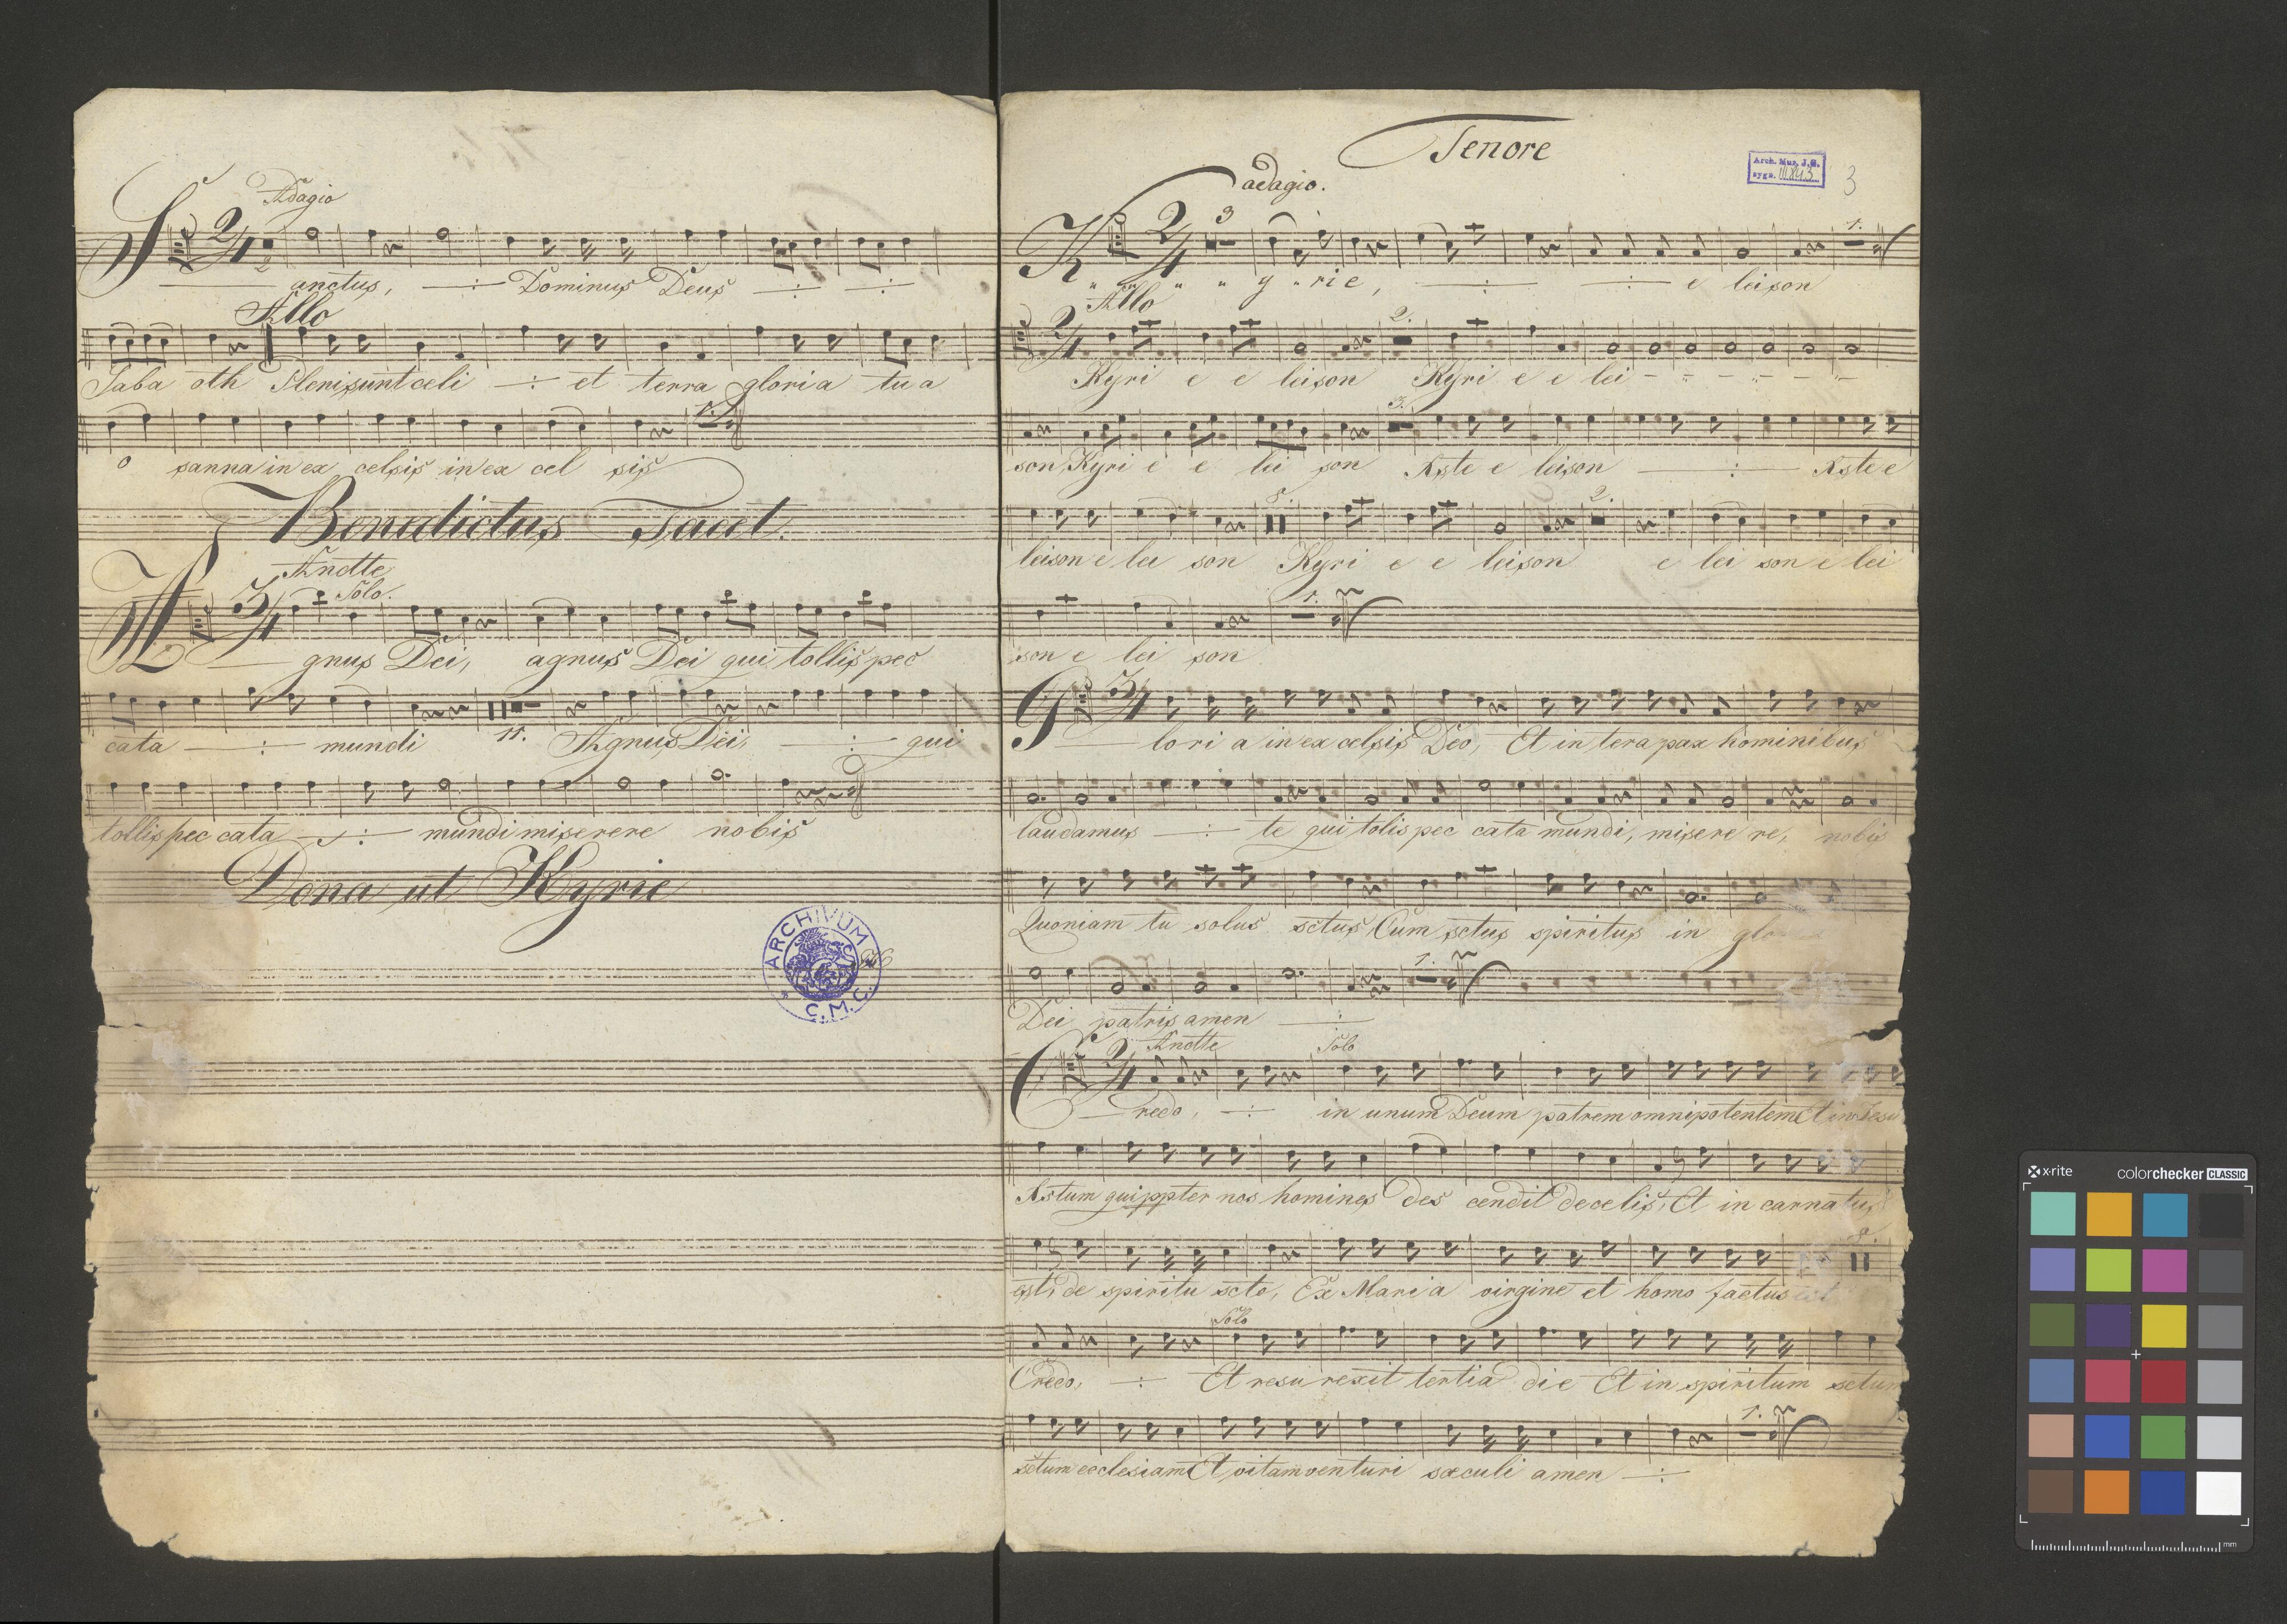 Adagio
2/4
2
Sanctus, Dominus Deus
Allo
Saba oth Pleni sunt celi et terra gloria tua
1.
o sanna in ex celsis in ex cel sis
Benedictus Tacet.
Andtte
Solo.
3/4
Agnus Dei, agnus Dei qui tollis pec
cata mundi 11. Agnus Dei, qui
tollis pec cata mundi miserere nobis
Dona ut Kyrie
ARCHIVUM
C.M.C.
Tenore
Arch. Muz. J.G.
sygn. III 843
3
adagio.
2/4 3 1.
Ky rie, e leison
Allo
2/4 2.
Kyri e e leison Kyri e e lei
3.
son Kyri e e lei son Xste e leison Xste e
5. 2.
leison e lei son Kyri e e leison e lei son e lei
1.
son e lei son
3/4
Glori a in ex celsis Deo, Et in tera pax hominibus
laudamus te qui tolis pec cata mundi, misere re, nobis
Quoniam tu solus sctus, Cum sctus spiritus in glo
1.
Dei patris amen
Andtte Solo
2/4
Credo, in unum Deum patrem omnipotentem Et in Jesu
Xstum qui ppter nos homines des cendit de celis, Et in carnatus
5.
est, de spiritu scto, Ex Mari a virgine et homo factus est
Solo
Credo, Et resu rexit tertia die Et in spiritum sctum
1.
sctum ecclesiam Et vitam venturi sæculi amen
x-rite colorchecker CLASSIC
mm